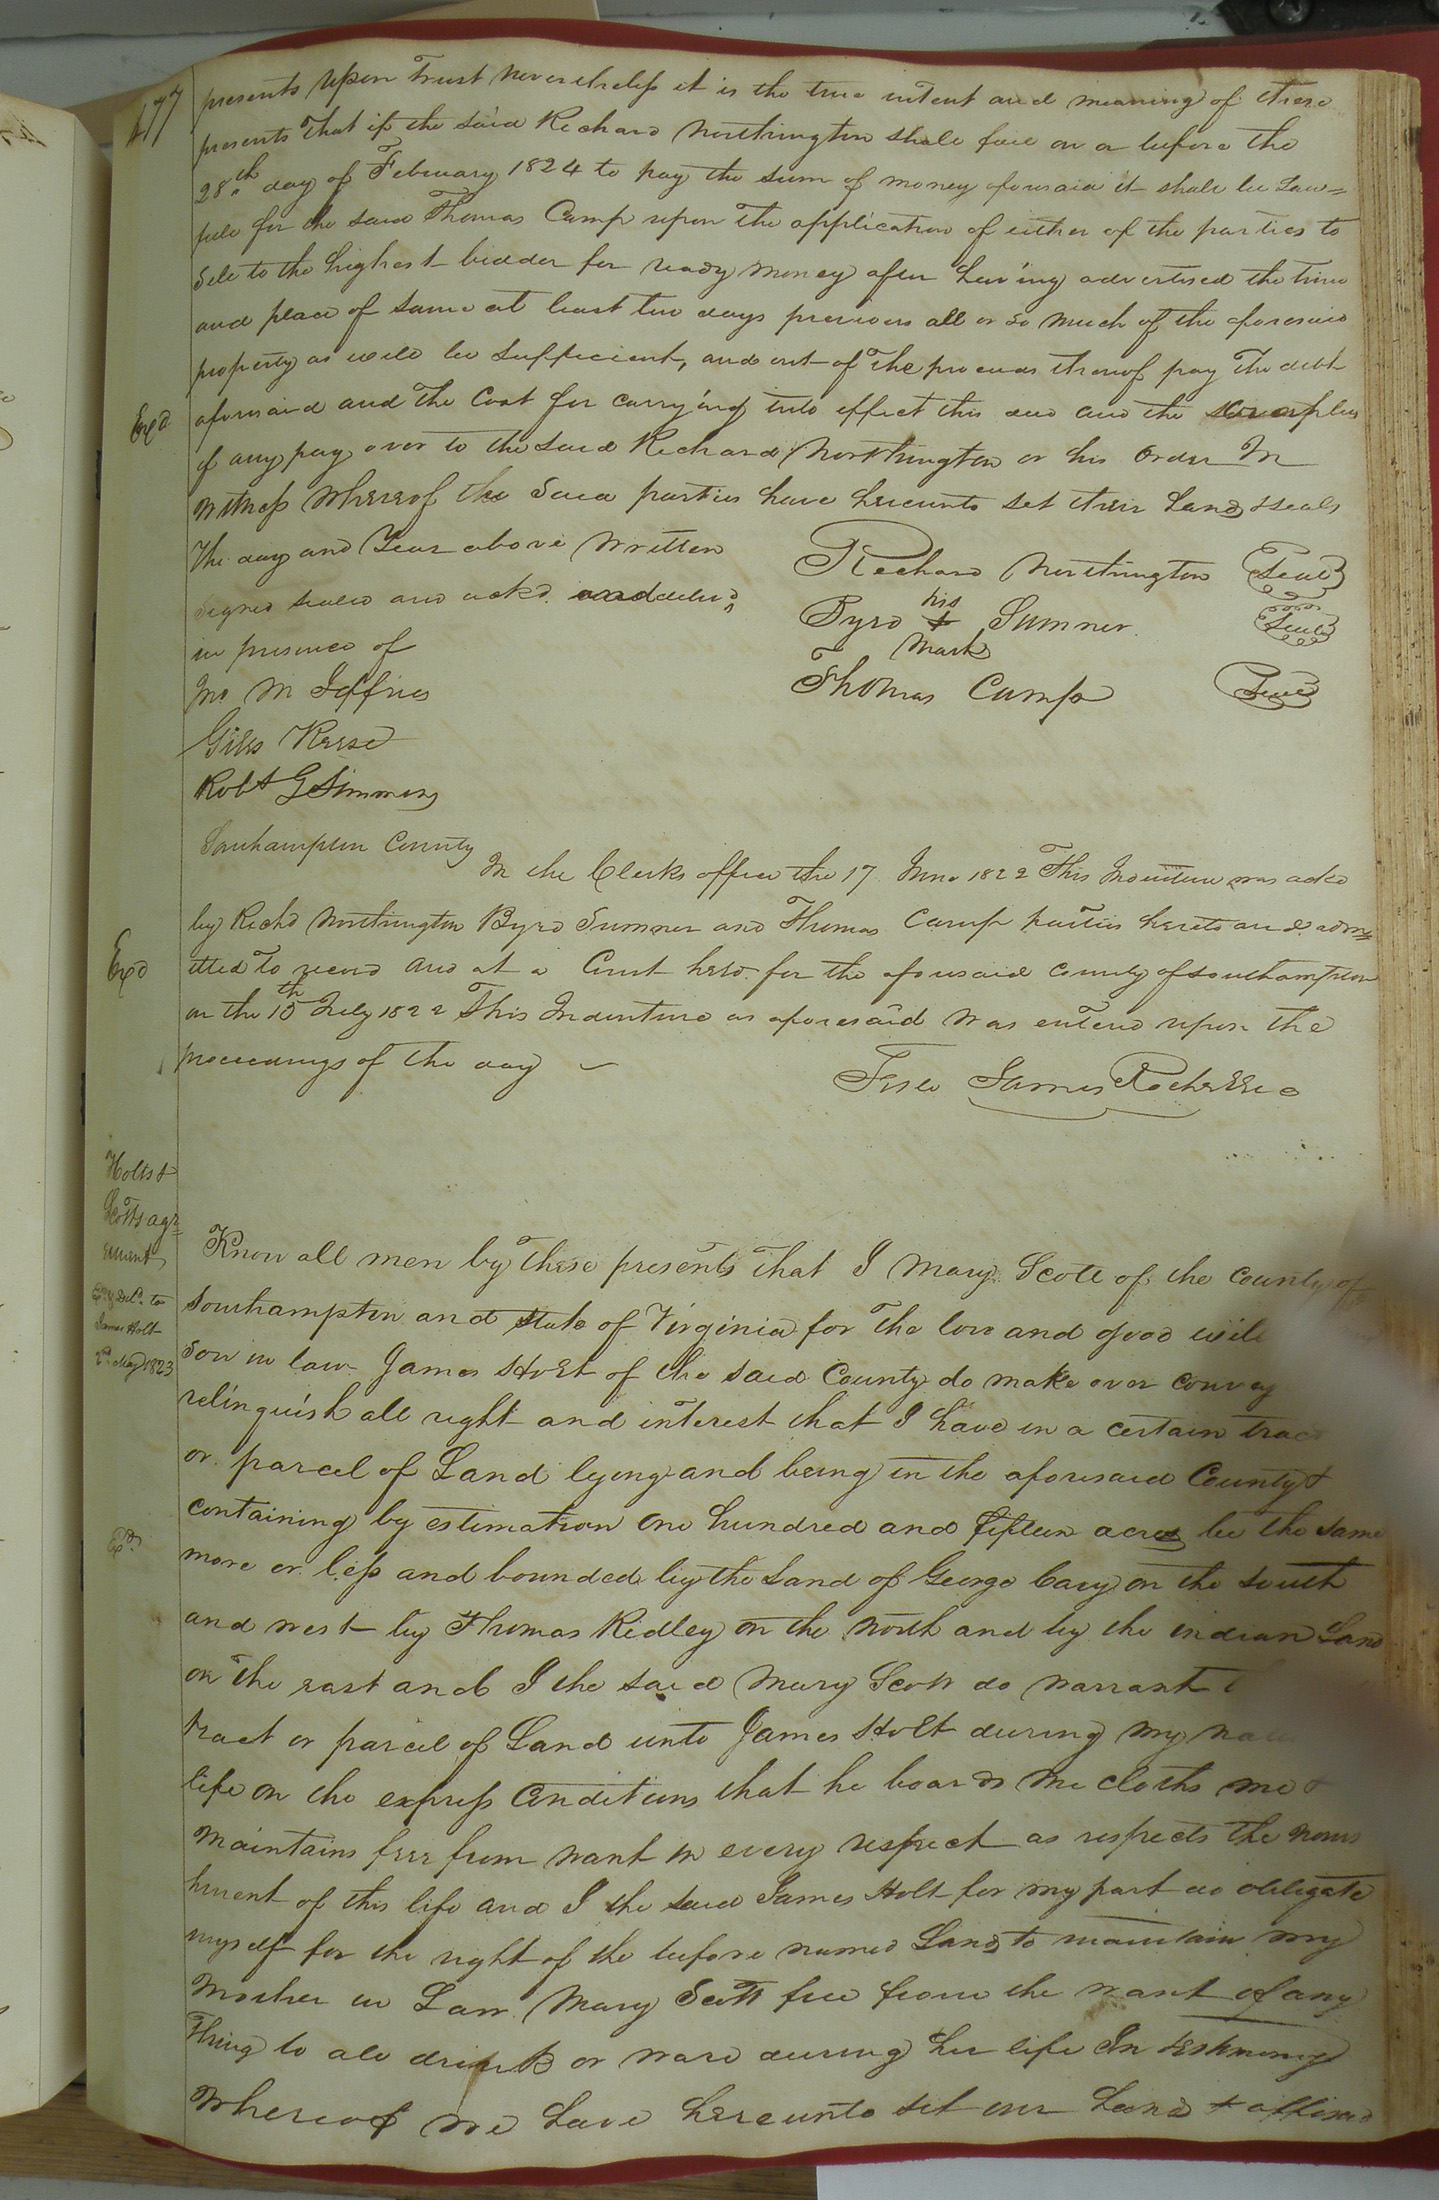 477
presents upon Trust Nevertheless it is the true intent and meaning of these
presents that if the said Richard Northington shall fail on or before the
28th day of February 1824 to pay the sum of money aforesaid it shall be Law=
full for the said Thomas Camp upon the application of either of the parties to
Sell to the highest bidder for ready money after having advertised the time
and place of same at least two days previous all or so much of the aforesaid
property as will be sufficient, and out of the proceeds thereof pay the debt
Exd
aforesaid and the Cost for carrying into effect this deed and the surplus
if any pay over to the said Richard Northington or his Order In
witness Whereof the said parties have hereunto set their hands & seals
the day and Year above Written
Signed sealed and ackd. and deld.
in presence of
Jno M Jeffries
Giles Reese
Robt G Simmons
Richard Northington Seal
Byrd his + mark Sumner Seal
Thomas Camp Seal
Southampton County
In the Clerks office the 17 June 1822 This Indenture was ackd
by Richd Northington Byrd Sumner and Thomas Camp parties hereto and adm=
Exd
itted to record and at a Court held for the aforesaid County of Southampton
on the 15th July 1822 This Indenture as aforesaid was enterd upon the
proceedings of the day
Teste James Rochelle
Holts &
Scotts agr=
eement
Ex & Deld. to
James Holt
2nd May 1823
Know all men by these presents that I Mary Scott of the County of
Southampton and State of Virginia for the love and good will
Son in law James Holt of the said County do make over convey
relinquish all right and interest that I have in a certain tract
or parcel of Land lying and being in the aforesaid County &
containing by estimation One hundred and fifteen acres be the same
Exd
more or less and bounded by the Land of George Cary on the south
and west by Thomas Ridley on the North and by the indian Land
on the east and I the said Mary Scott do warrant
tract or parcel of Land unto James Holt during my
life on the express Conditions that he boards me cloths me &
maintains free from want in every respect as respects the nouris
hment of this life and I the said James Holt for my part do obligate
myself for the right of the before named Land to maintain my
Mother in Law Mary Scott free from the want of any
Thing to drink or ware during her life In testimony
Whereof we have hereunto set our hand & affixed